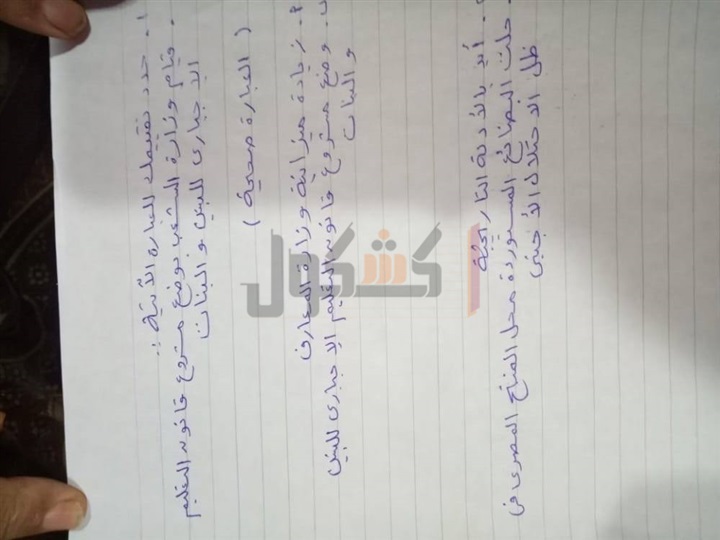 ١- حدد تقييمك للعبارة الآتية :-
- قيام وزارة الشعب بوضع مشروع قانون التعليم
الاجبارى للبنين و البنات
( العبارة صحيحة )
٢- زيادة ميزانية وزارة المعارف
ب- وضع مشروع قانون التعليم الاجبارى للبنين
و البنات
- أيد بالأدلة التاريخية
- حلت البضائع المستوردة محل المنتج المصرى فى
ظل الاحتلال الأجنبى
كشكول